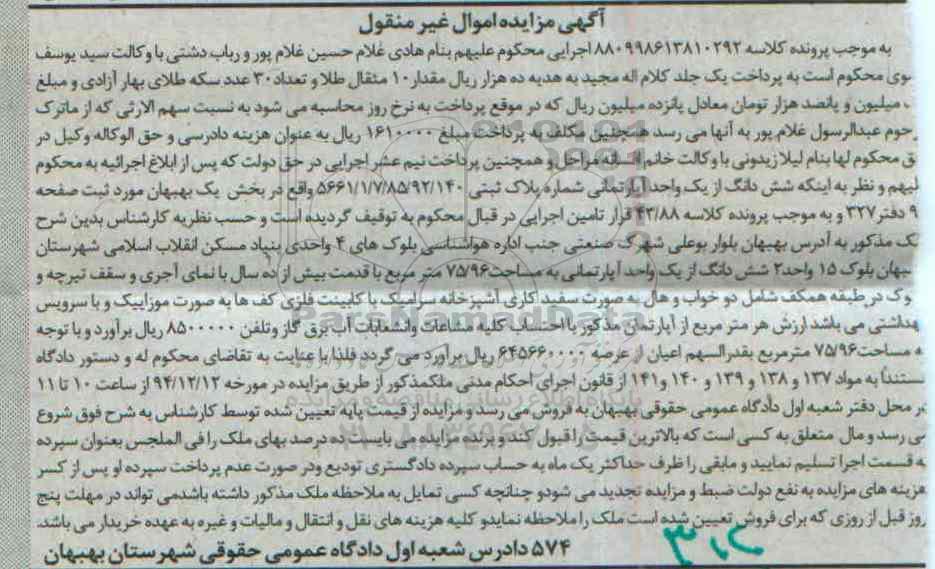 آگهی مزایده اموال غیر منقول
به موجب پرونده کلاسه ۸۸۰۹۹۸۶۱۳۸۱۰۲۹۲ اجرایی محکوم علیهم بنام هادی غلام حسین غلام پور و رباب دشتی با وکالت سید یوسف
موی محکوم است به پرداخت یک جلد کلام اله مجید به هدیه ده هزار ریال مقدار ۱۰ مثقال طلا و تعداد ۳۰ عدد سکه طلای بهار آزادی و مبلغ
میلیون و پانصد هزار تومان معادل پانزده میلیون ریال که در موقع پرداخت به نرخ روز محاسبه می شود به نسبت سهم الارثی که از ماترک
رحوم عبدالرسول غلام پور به آنها می رسد همچنین مکلف به پرداخت مبلغ ۱۶۱۰۰۰۰ ریال به عنوان هزینه دادرسی و حق الوکاله وکیل در
ق محکوم لها بنام لیلا زیدونی با وکالت خانم افسانه مراحل و همچنین پرداخت نیم عشر اجرایی در حق دولت که پس از ابلاغ اجرائیه به محکوم
لیهم و نظر به اینکه شش دانگ از یک واحد آپارتمانی شماره پلاک ثبتی ۵۶۶۱/۱/۷/۸۵/۹۲/۱۴۰ واقع در بخش یک بهبهان مورد ثبت صفحه
۹ دفتر ۳۲۷ و به موجب پرونده کلاسه ۴۳/۸۸ قرار تامین اجرایی در قبال محکوم به توقیف گردیده است و حسب نظریه کارشناس بدین شرح
لک مذکور به آدرس بهبهان بلوار بوعلی شهرک صنعتی جنب اداره هواشناسی بلوک های ۴ واحدی بنیاد مسکن انقلاب اسلامی شهرستان
بهبهان بلوک ۱۵ واحد۲ شش دانگ از یک واحد آپارتمانی به مساحت۷۵/۹۶ متر مربع با قدمت بیش از ده سال با نمای آجری و سقف تیرچه و
لوک در طبقه همکف شامل دو خواب و هال به صورت سفید کاری آشپزخانه سرامیک با کابینت فلزی کف ها به صورت موزاییک و با سرویس
هداشتی می باشد ارزش هر متر مربع از آپارتمان مذکور با احتساب کلیه مشاعات وانشعابات آب برق گاز وتلفن ۸۵۰۰۰۰۰ ریال برآورد و با توجه
ه مساحت۷۵/۹۶ مترمربع بقدرالسهم اعیان از عرصه ۶۴۵۶۶۰۰۰۰ ریال برآورد می گردد فلذا با عنایت به تقاضای محکوم له و دستور دادگاه
ستنداً به مواد ۱۳۷ و ۱۳۸ و ۱۳۹ و ۱۴۰ و ۱۴۱ از قانون اجرای احکام مدنی ملکمذکور از طریق مزایده در مورخه ۹۴/۱۲/۱۲ از ساعت ۱۰ تا ۱۱
در محل دفتر شعبه اول دادگاه عمومی حقوقی بهبهان به فروش می رسد و مزایده از قیمت پایه تعیین شده توسط کارشناس به شرح فوق شروع
می رسد و مال متعلق به کسی است که بالاترین قیمت را قبول کند و برنده مزایده می بایست ده درصد بهای ملک را فی المجلس بعنوان سپرده
به قسمت اجرا تسلیم نمایید و مابقی را ظرف حداکثر یک ماه به حساب سپرده دادگستری تودیع ودر صورت عدم پرداخت سپرده او پس از کسر
هزینه های مزایده به نفع دولت ضبط و مزایده تجدید می شودو چنانچه کسی تمایل به ملاحظه ملک مذکور داشته باشدمی تواند در مهلت پنج
روز قبل از روزی که برای فروش تعیین شده است ملک را ملاحظه نمایدو کلیه هزینه های نقل و انتقال و مالیات و غیره به عهده خریدار می باشد.
۵۷۴ دادرس شعبه اول دادگاه عمومی حقوقی شهرستان بهبهان
ParsNamadData